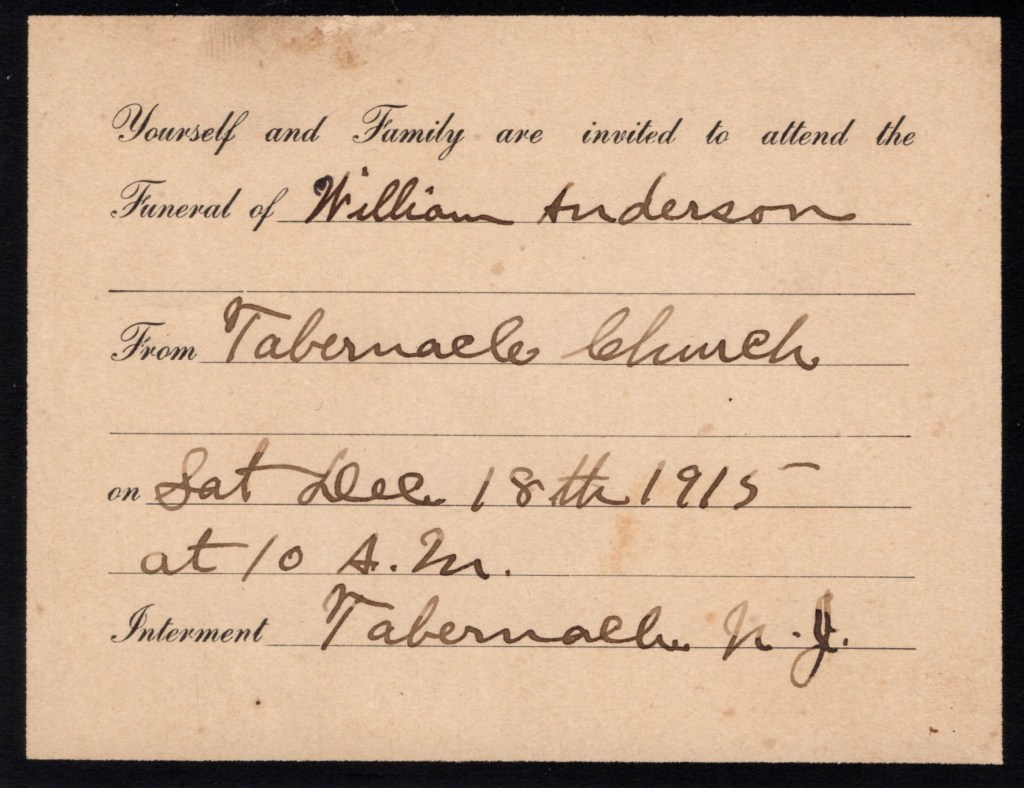 Yourself and Family are invited to attend the
Funeral of William Anderson
From Tabernacle Church
on Sat Dec 18th 1915
at 10 A.M.
Interment Tabernacle N.J.